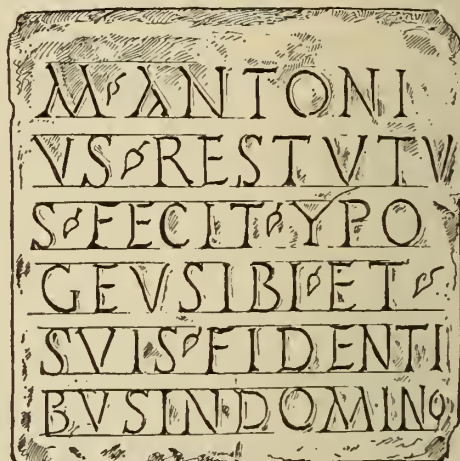 M ANTONI
VS RESTVTV
S FECIT YPO
GEVSIBI ET
SVIS FIDENTI
BVSINDOMINO